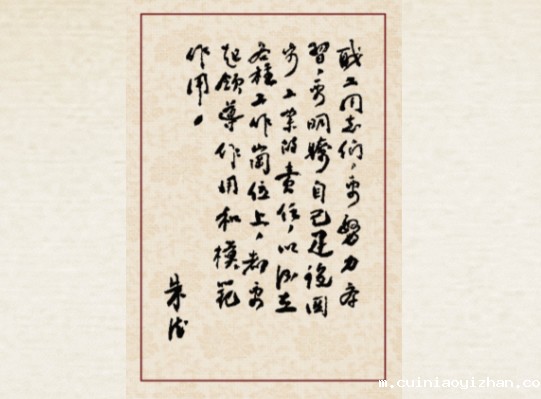 职工同志们，要努力学
習，要明瞭自己建設国
家工業的責任，以後在
各種工作崗位上，都要
起領導作用和模範
作用。
朱德
m.cuiniaoyizhan.co